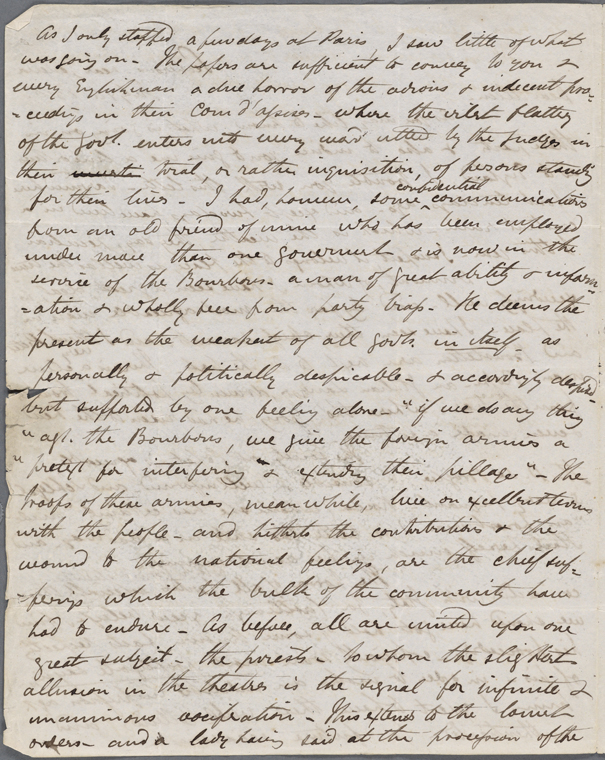 As I only stopped a few days at Paris, I saw little of what
was going on - The papers are sufficient to convey to you &
every Englishman a due horror of the odious & indecent pro-
-ceedings in their Cours d'assises - where the vilest flattery
of the Govt. enters into every word uttered by the Judges in
their trial, or rather inquisition, of persons standing
for their lives - I had, however, some confidential communications
from an old friend of mine who has been employed
under more than one government & is now in the
service of the Bourbons - a man of great ability & inform-
=ation & wholly free from party bias - He deems the
present as the weakest of all govts. in itself as
personally & politically despicable - & accordingly despised
but supported by one feeling alone - "if we do any thing
"agt. the Bourbons, we give the foreign armies a
"pretext for interfering & extending their pillage" - The
troops of these armies, meanwhile, live on excellent terms
with the people - and hitherto the contributions & the
wound to the national feelings, are the chief suf-
-ferings which the bulk of the community have
had to endure - As before, all are united upon one
great subject - the priests - to whom the slightest
allusion in the theatres is the signal for infinite &
unanimous vociferation - This extends to the lowest
orders - and a lady having said at the procession of the